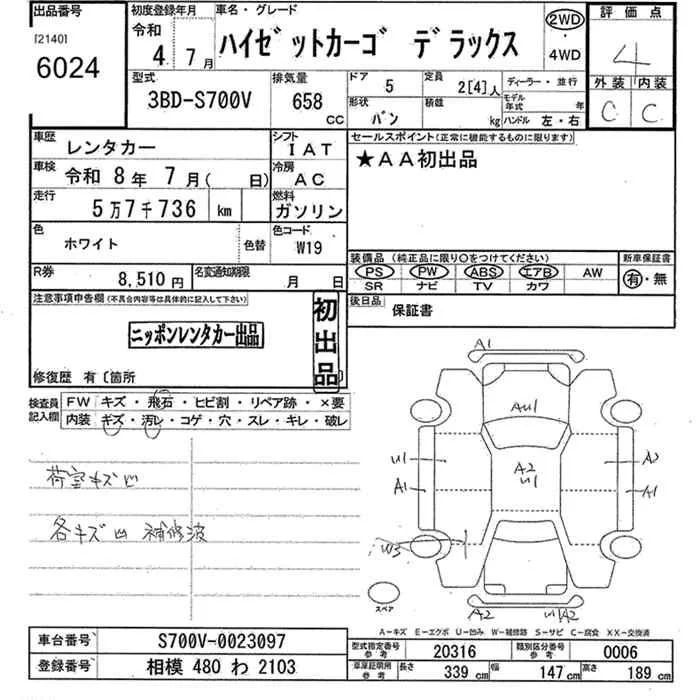 出品番号
[2140]
6024
初度登録年月
令和
4年 7月
車名・グレード
ハイゼットカーゴ デラックス
2WD
・
4WD
評価点
4
外装 内装
C C
型式
3BD-S700V
排気量
658 CC
ドア 5
定員 2[4]人
ディーラー・並行
形状 バン
積載 kg
モデル年式 年
ハンドル 左・右
車歴 レンタカー
シフト IAT
車検 令和 8年 7月( 日)
冷房 AC
走行 5万7千736 km
燃料 ガソリン
色 ホワイト 色替
色コード W19
R券 8,510円
名変通知期限 月 日
セールスポイント(正常に機能するものに限ります)
★AA初出品
装備品(純正品に限り○をつけてください)
PS PW ABS エアB AW
SR ナビ TV カワ
新車保証書
有・無
後日品 保証書
注意事項申告欄(不具合内容等は具体的に記入して下さい)
ニッポンレンタカー出品
初出品
修復歴 有〔箇所 〕
検査員記入欄
FW キズ・飛石・ヒビ割・リペア跡・×要
内装 キズ・汚レ・コゲ・穴・スレ・キレ・破レ
荷室キズ凹
各キズ凹 補修波
A1
AU1
U1
A2
U1
A2
A1
A1
W3
A2
U1 A2
スペア
A-キズ E-エクボ U-凹み W-補修跡 S-サビ C-腐食 XX-交換済
車台番号 S700V-0023097
登録番号 相模 480 わ 2103
型式指定番号 参考 20316
類別区分番号 参考 0006
車庫証明用 参考 長さ 339 cm 幅 147 cm 高さ 189 cm